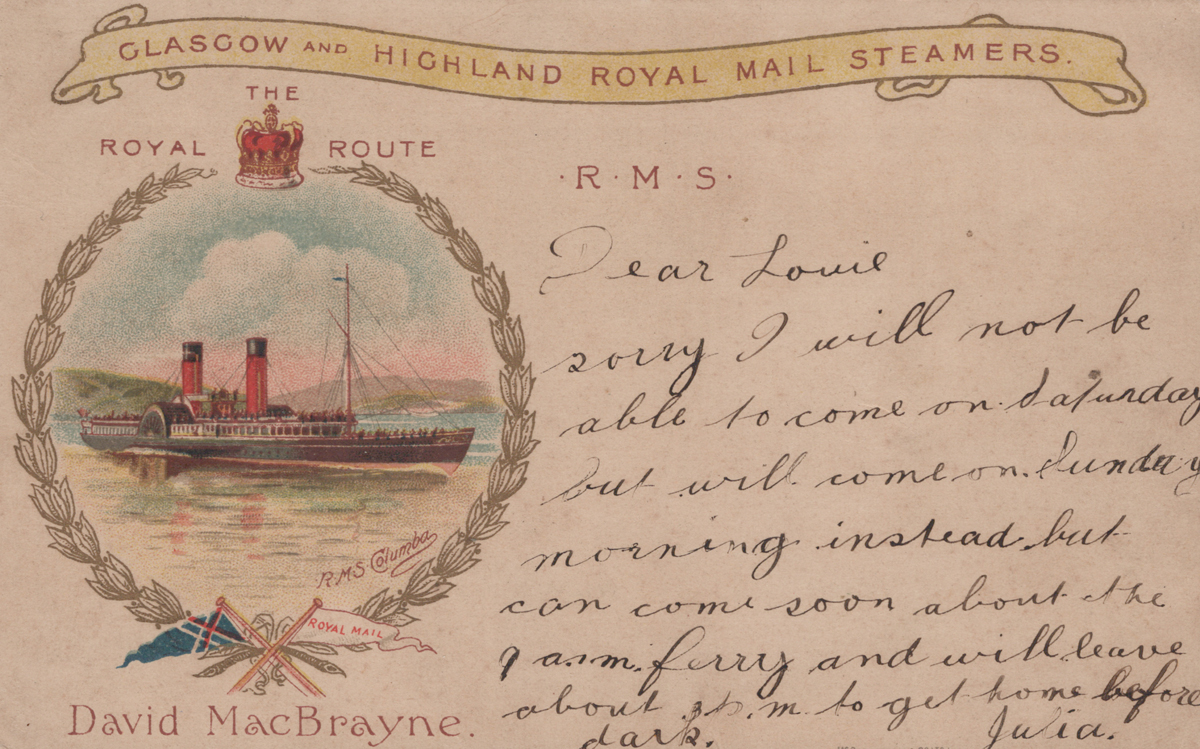 GLASGOW AND HIGHLAND ROYAL MAIL STEAMERS.
THE
ROYAL ROUTE
· R · M · S ·
R.M.S. Columba
ROYAL MAIL
David MacBrayne.
Dear Louie
sorry I will not be
able to come on Saturday
but will come on Sunday
morning instead but
can come soon about the
9 a.m. ferry and will leave
about p.m. to get home before
dark. Julia.